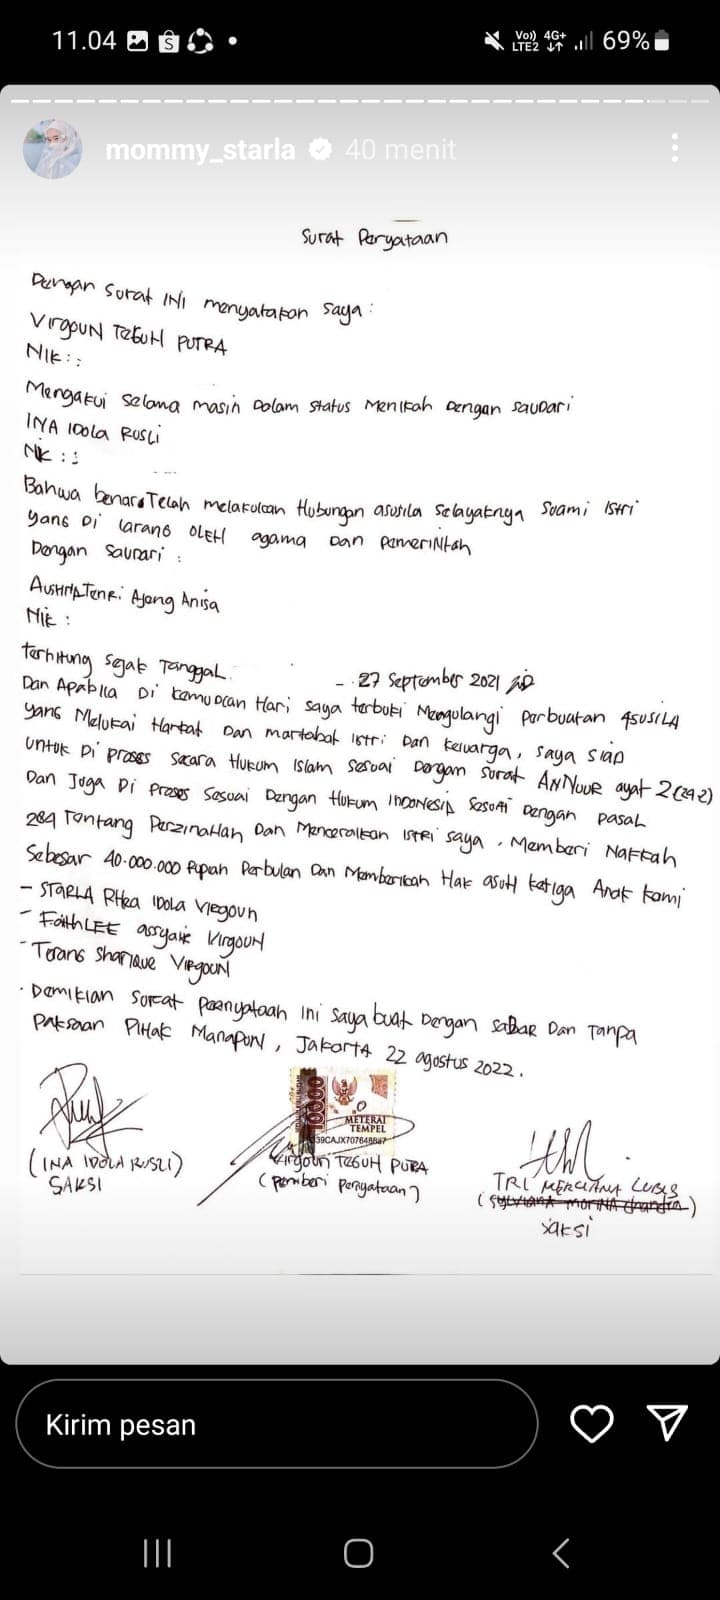 11.04
Vo)) 4G+
LTE2 69%
mommy_starla 40 menit
Surat Peryataan
Dengan surat INI menyatakan saya :
VIRGOUN TEGUH PUTRA
NIK : :
Mengakui selama masih Dalam status Menikah Dengan saudari
INA IDOLA RUSLI
NIK : :
Bahwa benar Telah melakukan Hubungan asusila selayaknya Suami Istri
yang Di larang OLEH agama Dan pemerintah
Dengan Saudari :
Tenri Ajeng Anisa
NIK :
terhitung sejak Tanggal - 27 September 2021
Dan Apabila Di kemudian Hari saya terbukti Mengulangi perbuatan asusila
yang Melukai Harkat Dan martabat istri Dan keluarga, saya siap
untuk Di proses secara Hukum Islam sesuai Dengan surat ANNUUR ayat 2 (24:2)
Dan Juga Di proses sesuai Dengan Hukum INDONESIA sesuai Dengan pasal
284 Tentang Perzinahan Dan Menceraikan istri saya, Memberi Nafkah
Sebesar 40.000.000 Rupiah Perbulan Dan Memberikan Hak asuh ketiga Anak kami
- STARLA RHea IDOLA VIRGOUN
- FaithLEE assyarik VirgouN
- Terang sharique VIRGOUN
. Demikian surat pernyataan ini saya buat Dengan sadar Dan Tanpa
Paksaan Pihak Manapun, Jakarta 22 agustus 2022.
10000
METERAI
TEMPEL
(INA IDOLA RUSLI) Virgoun TEGUH PURA TRI MERCIANA LUBIS
SAKSI (pemberi peryataan)
SAKSI
Kirim pesan